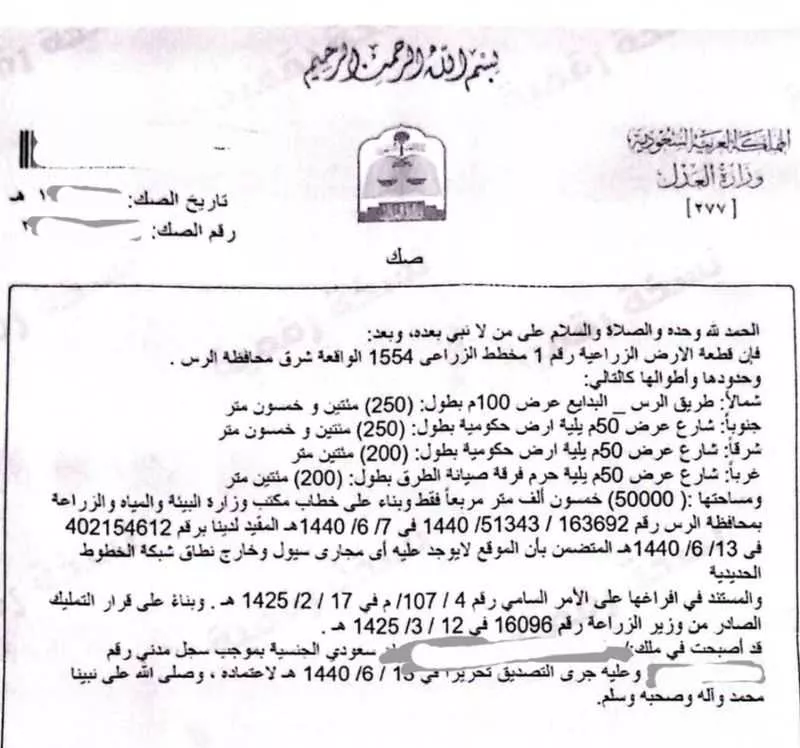 بسم الله الرحمن الرحيم
المملكة العربية السعودية
وزارة العدل
[٢٧٧]
تاريخ الصك: ١ هـ
رقم الصك: ٢
صك
الحمد لله وحده والصلاة والسلام على من لا نبي بعده، وبعد:
فإن قطعة الارض الزراعية رقم 1 مخطط الزراعى 1554 الواقعة شرق محافظة الرس .
وحدودها وأطوالها كالتالي:
شمالاً: طريق الرس _ البدايع عرض 100م بطول: (250) مئتين و خمسون متر
جنوباً: شارع عرض 50م يلية ارض حكومية بطول: (250) مئتين و خمسون متر
شرقاً: شارع عرض 50م يلية ارض حكومية بطول: (200) مئتين متر
غرباً: شارع عرض 50م يلية حرم فرقة صيانة الطرق بطول: (200) مئتين متر
ومساحتها :( 50000) خمسون ألف متر مربعاً فقط وبناء على خطاب مكتب وزارة البيئة والمياه والزراعة
بمحافظة الرس رقم 163692 / 51343/ 1440 فى 7/ 6/ 1440هـ المقيد لدينا برقم 402154612
فى 13/ 6/ 1440هـ المتضمن بأن الموقع لايوجد عليه أى مجارى سيول وخارج نطاق شبكة الخطوط
الحديدية
والمستند في افراغها على الأمر السامي رقم 4 / 107/ م في 17 / 2/ 1425 هـ . وبناءً على قرار التمليك
الصادر من وزير الزراعة رقم 16096 في 12 / 3/ 1425 هـ .
قد أصبحت في ملك: سعودي الجنسية بموجب سجل مدني رقم
وعليه جرى التصديق تحريراً في 13 / 6/ 1440 هـ لاعتماده ، وصلى الله على نبينا
محمد وآله وصحبه وسلم.